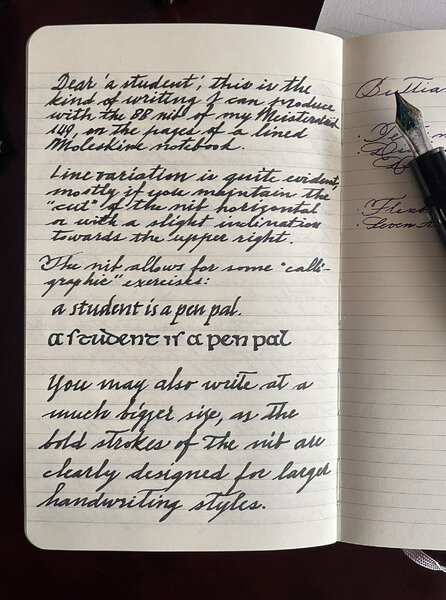 Dear 'a student', this is the
kind of writing I can produce
with the BB nib of my Meisterstück
149 on the pages of a lined
Moleskine notebook.
Line variation is quite evident,
mostly if you maintain the
"cut" of the nib horizontal
or with a slight inclination
towards the upper right.
The nib allows for some "calli-
graphic" exercises:
a student is a pen pal.
a student is a pen pal
You may also write at a
much bigger size, as the
bold strokes of the nib are
clearly designed for larger
handwriting styles.